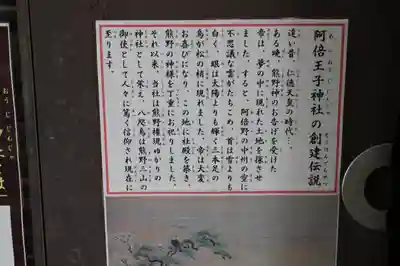 阿倍王子神社の創建伝説
遠い昔、仁徳天皇の時代…。
ある暁、熊野神のお告げを受けた
帝は、夢の中に現れた土地を探させ
ました。すると、阿倍野の中州の空に
不思議な雲がたちこめ、首は雪よりも
白く、眼は太陽よりも輝く三本足の
烏が松の梢に現れました。帝は大変
お喜びになり、この地に社殿を築き、
熊野の神様を丁重にお祀りしました。
それ以来、当社は熊野権現ゆかりの
神社として栄え、八咫烏は熊野三山の
御使として人々に篤く信仰され現在に
至ります。